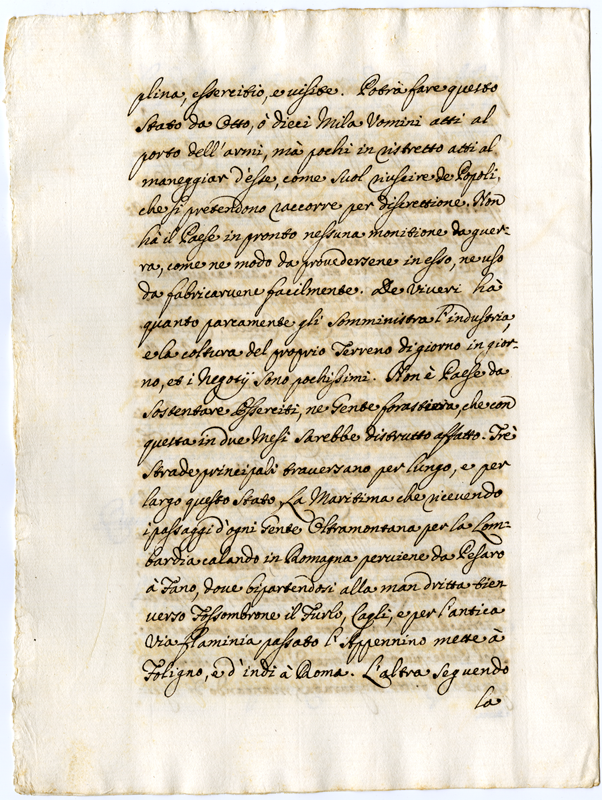 plina, essercitio, e visite. Potrà fare questo
Stato da Otto, ò dieci Mila Uomini atti al
porto dell'armi, mà pochi in ristretto atti al
maneggiar d'esse, come suol riuscire de Popoli,
che si pretendono raccorre per discrettione. Non
hà il Paese in pronto nessuna monitione da guer-
ra, come ne modo da provedersene in esso, ne uso
da fabricarvene facilmente. De viveri hà
quanto parcamente gli somministra l'industria,
e la coltura del proprio Terreno di giorno in gior-
no, et i Negotij sono pochissimi. Non è Paese da
sostentare Esserciti, ne Gente forastiera, che con
questa in due Mesi sarebbe distrutto affatto. Trè
strade principali traversano per lungo, e per
largo questo Stato. La Maritima che ricevendo
i passaggi d'ogni Gente Oltramontana per la Lom-
bardia calando in Romagna perviene da Pesaro
à Fano, dove bipartendosi alla man dritta tien
verso Fossombrone il Furlo, Cagli, e per l'antica
Via flaminia passato l'Appennino mette à
Foligno, e d'indi à Roma. L'altra seguendo
la